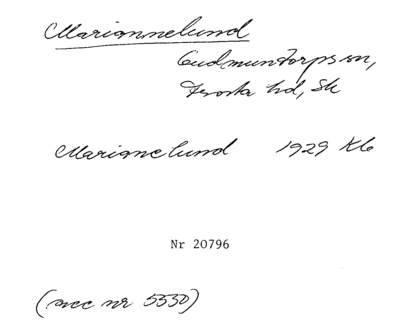 Mariannelund
Gudmuntorps sn,
Frosta hd, Sk
Mariannelund 1929 Kb
Nr 20796
(acc nr 5330)